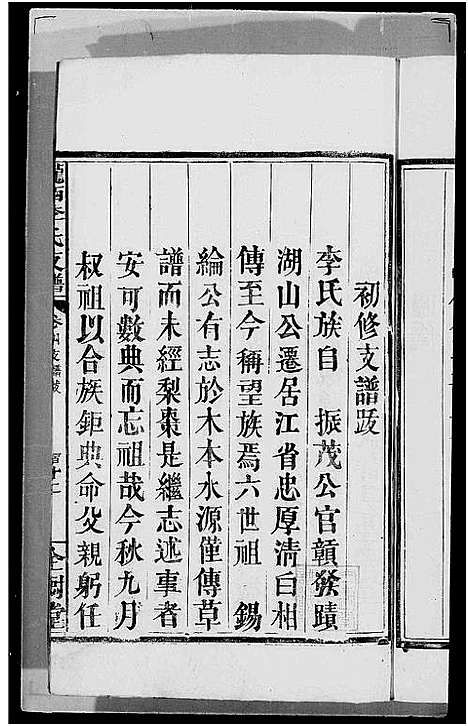 初修支譜跋
李氏族自　振茂公官贛發蹟
湖山公遷居江省忠厚清白相
傳至今稱望族焉六世祖　錫
綸公有志於木本水源僅傳草
譜而未經梨棗是繼志述事者
安可數典而忘祖哉今秋九月
叔祖以合族鉅典命父親躬任
隴西李氏支譜